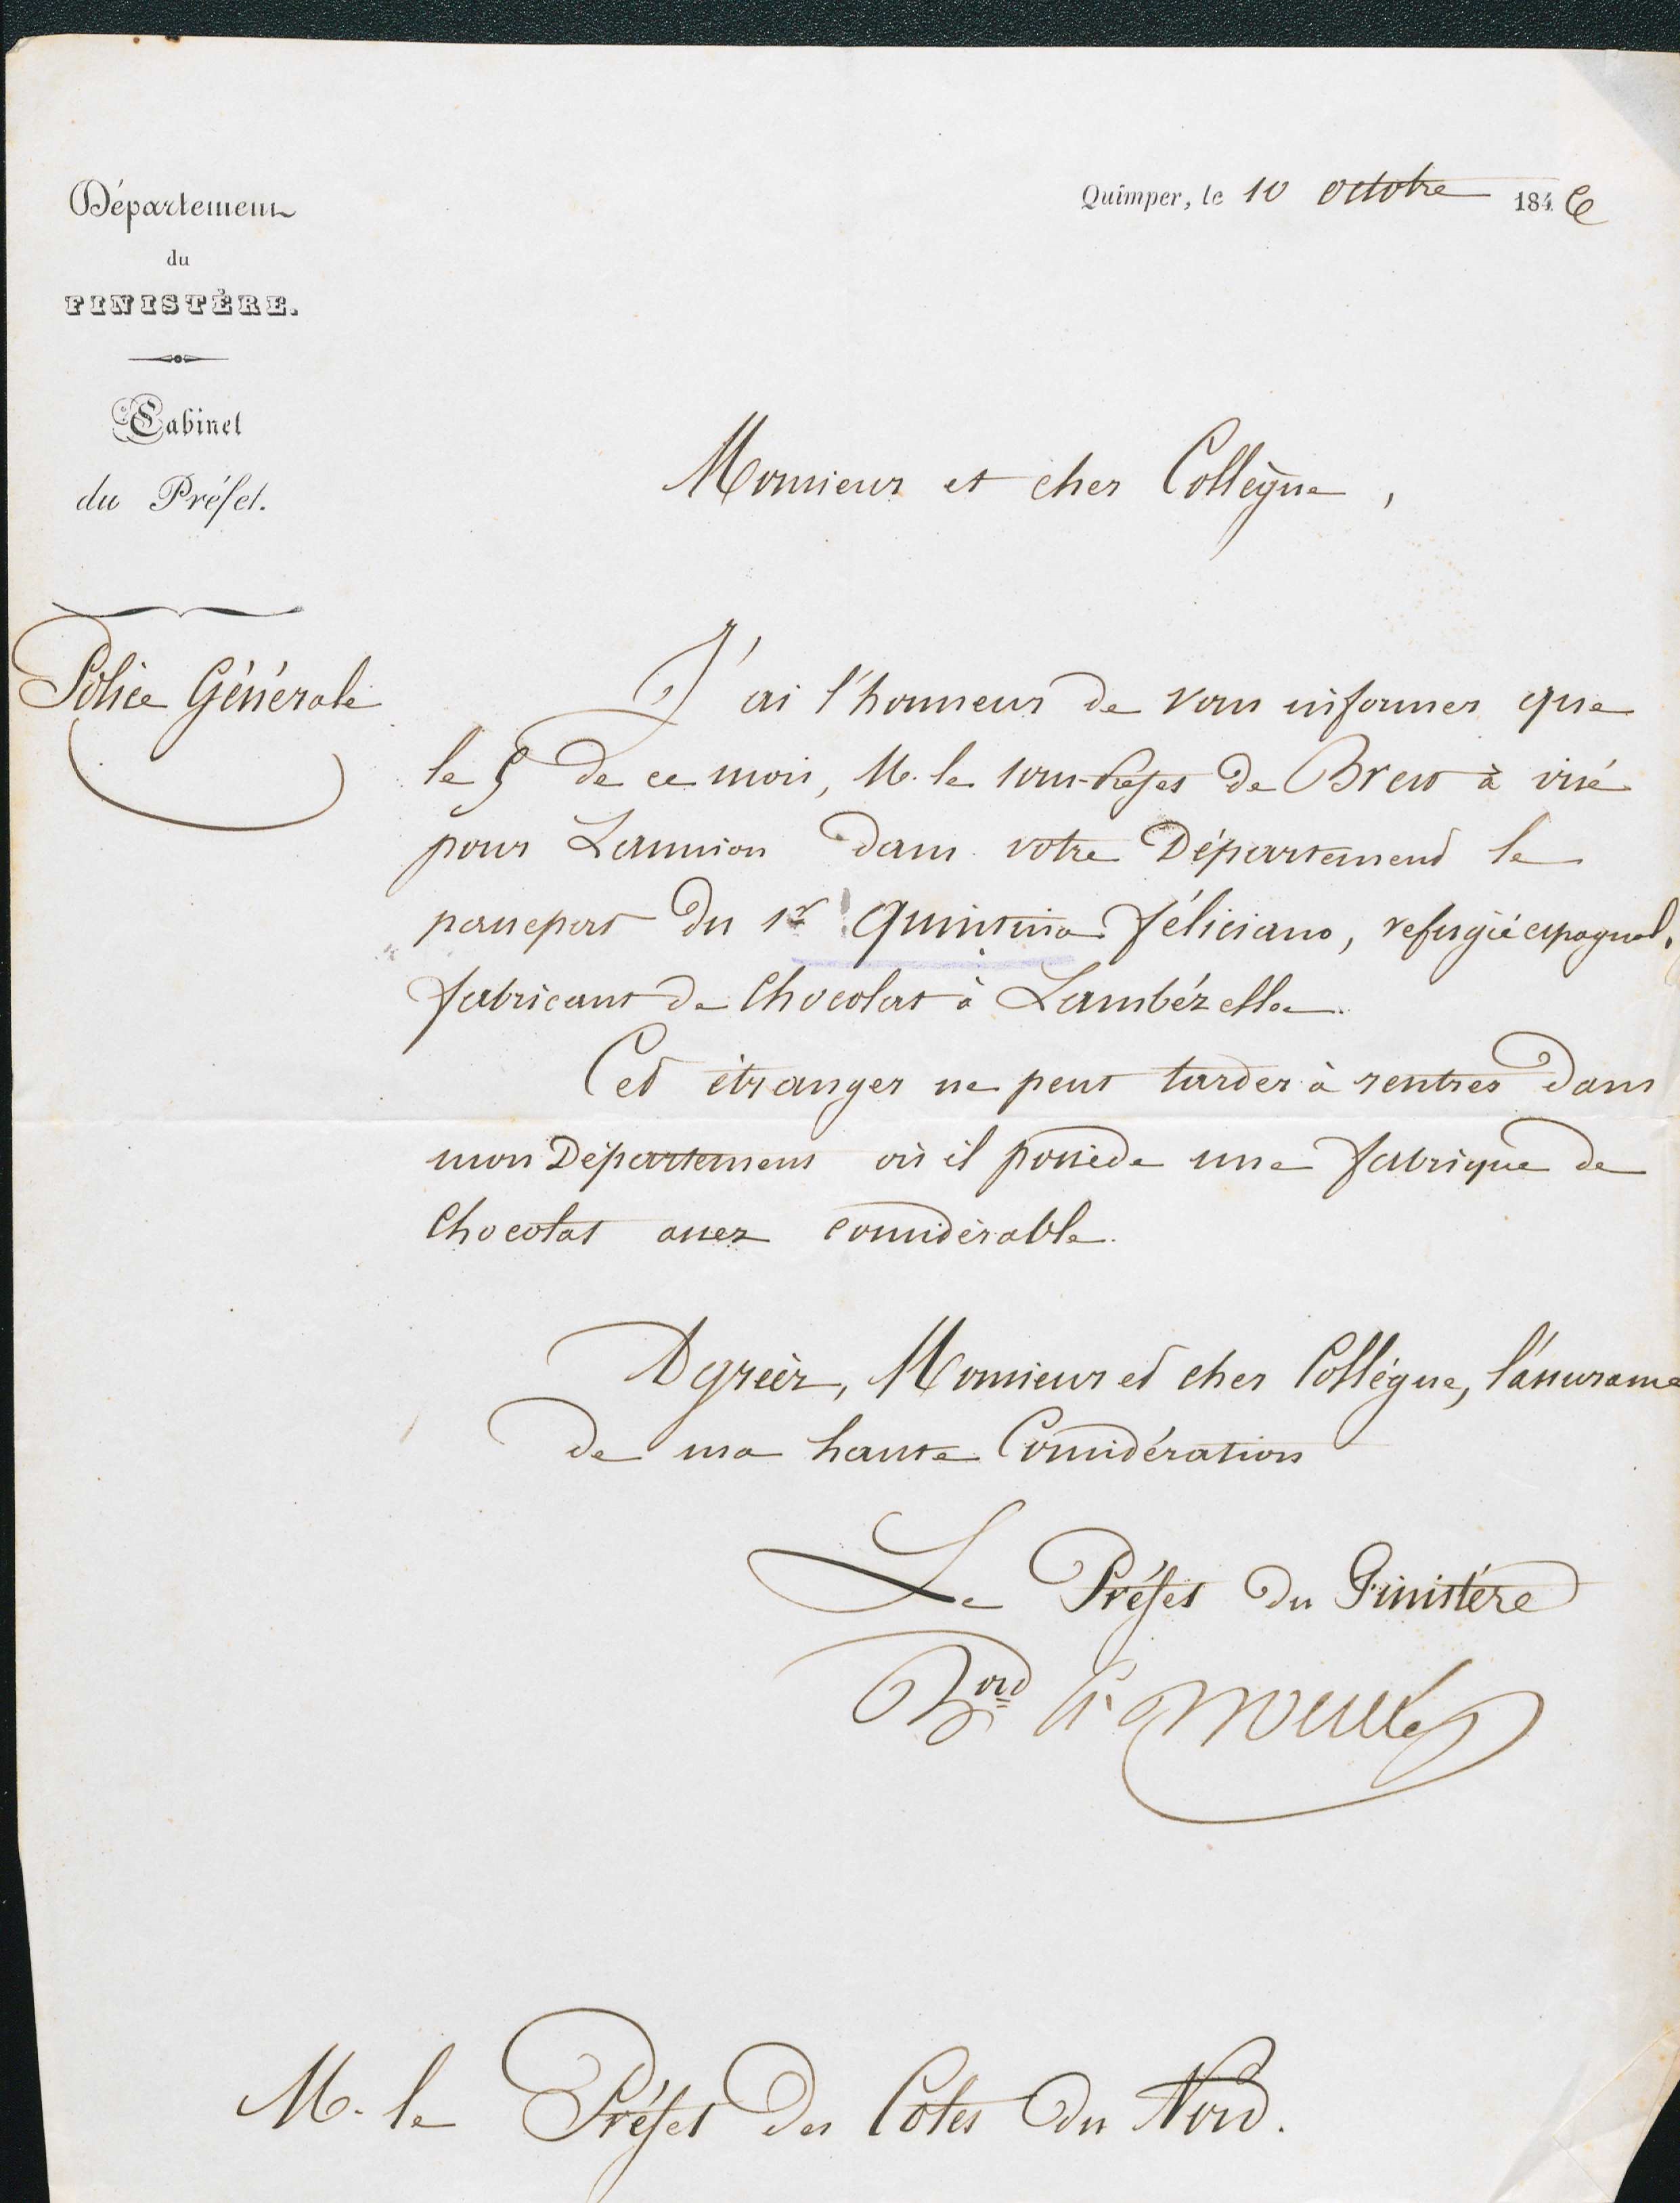 Département
du
FINISTÈRE.
Cabinet
du Préfet.
Police Générale
Quimper, le 10 octobre 1846
Monsieur et cher Collègue,
J'ai l'honneur de vous informer que
le 5 de ce mois, M. le sous-Préfet de Brest à visé
pour Lannion dans votre Département le
passeport du Sr Quintina Féliciano, refugié espagnol,
fabricant de Chocolat à Lambézellec.
Cet étranger ne peut tarder à rentrer dans
mon Département où il possède une fabrique de
Chocolat assez considérable.
Agréez, Monsieur et cher Collégue, l'assurance
de ma haute Considération
Le Préfet du Finistère
M. le Préfet des Cotes du Nord.